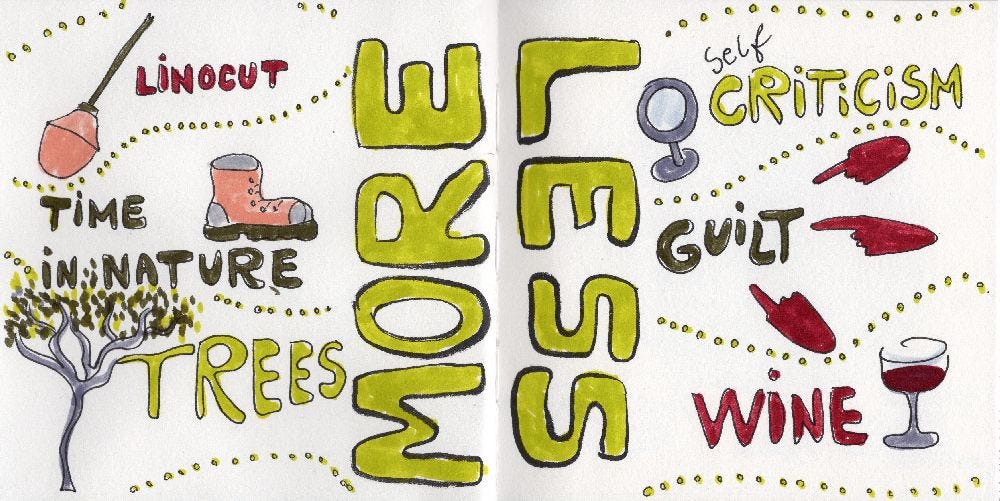 LiNOCUT
TiME
iN NATURE
TREES
MORE
LESS
self
CRiTiCiSM
GUiLT
WiNE